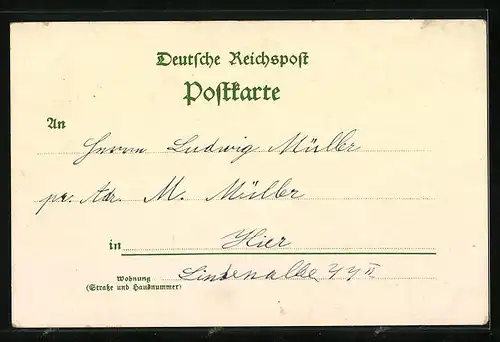 Deutsche Reichspost
Postkarte
An
Herrn Ludwig Müller
pr. Adr. M. Müller
in Hier
Wohnung
(Straße und Hausnummer)
Lindenallee 44 II